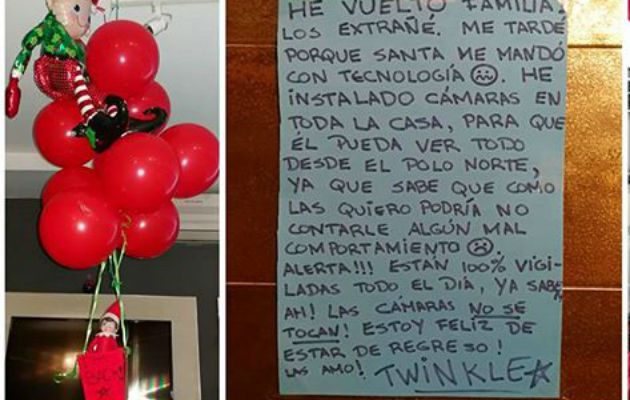 HE VUELTO FAMILIA,
LOS EXTRAÑÉ. ME TARDÉ
PORQUE SANTA ME MANDÓ
CON TECNOLOGÍA. HE
INSTALADO CÁMARAS EN
TODA LA CASA, PARA QUE
ÉL PUEDA VER TODO
DESDE EL POLO NORTE,
YA QUE SABE QUE COMO
LAS QUIERO PODRÍA NO
CONTARLE ALGÚN MAL
COMPORTAMIENTO.
ALERTA!!! ESTÁN 100% VIGI-
LADAS TODO EL DÍA, YA SABEN
AH! LAS CÁMARAS NO SE
TOCAN! ESTOY FELIZ DE
ESTAR DE REGRESO!
LAS AMO! TWINKLE